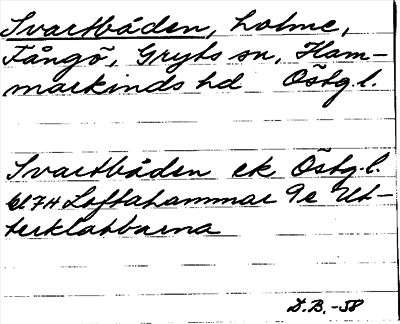 Svartbåden, holme,
Fångö, Gryts sn, Ham-
markinds hd Östg.l.
Svartbåden ek Östg.l.
Loftahammar 9e Ut-
terklabbarna
D.B.-58